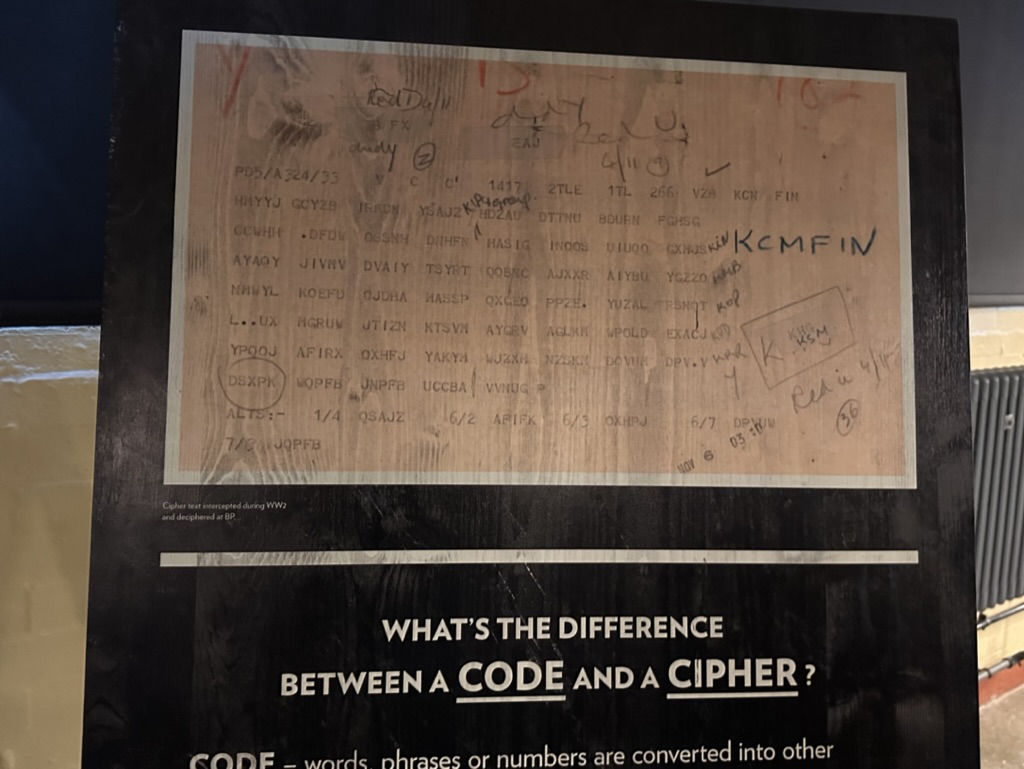 Red
dudy 2
ZAU
PO5/A324/33 C C' 1417 2TLE 1TL 266 VZB KCN FIN
HMYYJ GCYZB YSAJZ HDZAU DTTNU BDURN FGHSG
CCWHH .DFDW OSSNH DNHFN HASIG INOOS UIUOO GXHJS KCMFIN
AYAQY JIVMV DVAIY TSYRT AJXXR AIYBU YGZZO
NMWYL KOEFD OJDBA MASSP QXCEO PPZE. YUZAL RSNQT
L..UX MGRUW JTIZN KTSVM AYGRV AGLKM WPOLD EXACJ
YPOOJ AFIRX OXHFJ YAKYM WJZXM NZSKM DOVUM DPV.V
DSXPK WOPFB JNPFB UCCBA VVNUG
K
ALTS:- 1/4 QSAJZ 6/2 AFIFK 6/3 OXHPJ 6/7
36
JQPFB NOV 6
Cipher text intercepted during WW2
and deciphered at BP.
WHAT'S THE DIFFERENCE
BETWEEN A CODE AND A CIPHER?
CODE – words, phrases or numbers are converted into other